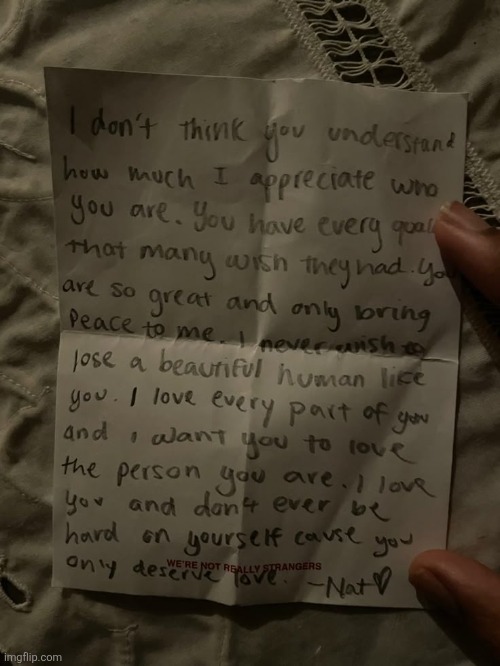 I don't think you understand
how much I appreciate who
you are. You have every
that many wish they had. You
are so great and only bring
Peace to me. I never wish to
lose a beautiful human like
you. I love every part of you
and i want you to love
the person you are. I love
you and don't ever be
hard on yourself cause you
only deserve love. -Nat♡
WE'RE NOT REALLY STRANGERS
imgflip.com